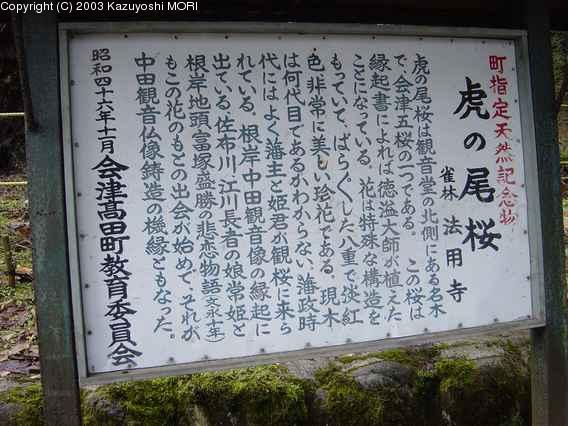 Copyright (C) 2003 Kazuyoshi MORI
町指定天然記念物
虎の尾桜
雀林 法用寺
虎の尾桜は観音堂の北側にある名木
で、会津五桜の一つである。この桜は
縁起書によれば、徳溢大師が植えた
ことになっている。花は特殊な構造を
もっていて、ばらぐした八重で淡紅
色、非常に美しい桜花である。現木
は何代目であるかわからない。藩政時
代にはよく藩主と姫君が観桜に来ら
れている。根岸中田観音像の縁起に
出ている、佐布川、江川長者の娘常姫と
根岸地頭富塚盛勝の悲恋物語(文永十一年)
もこの花のもとの出会が始めで、それが
中田観音仏像鋳造の機縁ともなった。
昭和四十六年十一月 会津高田町教育委員会